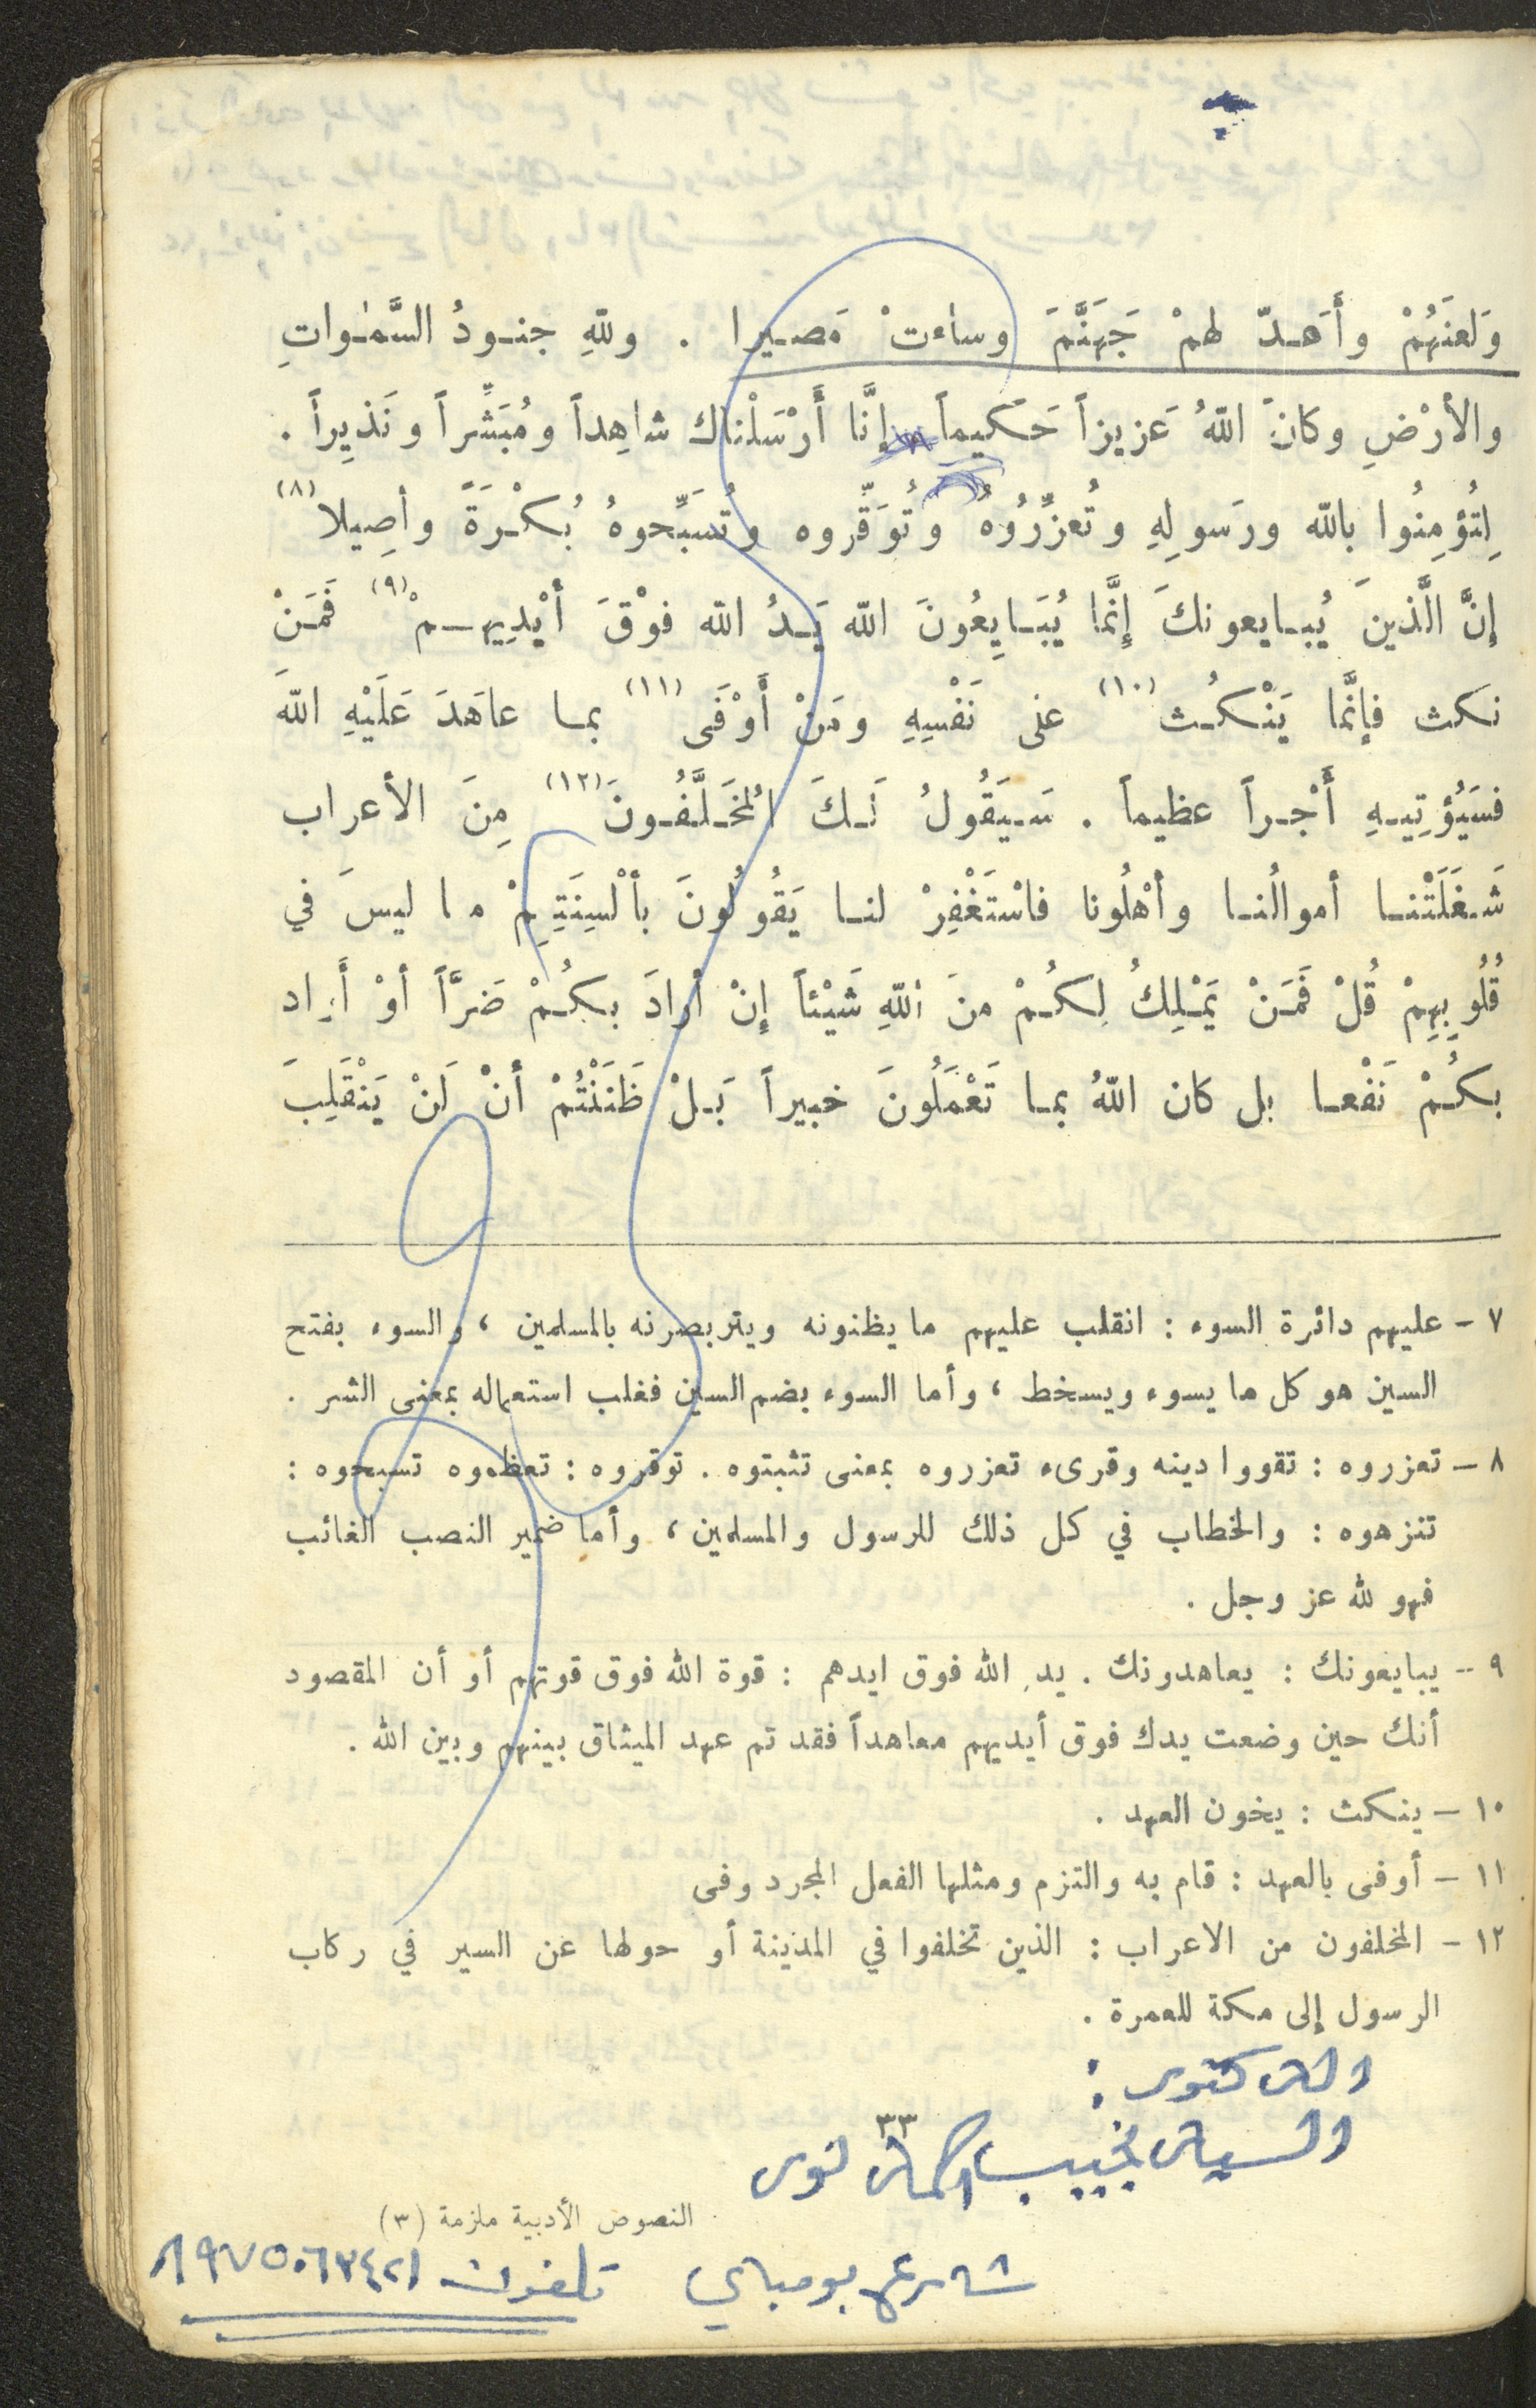 وَلَعنَهُمْ وأَهَدّ لهمْ جَهَنَّمَ وساءتْ مَصيرا . وللهِ جنودُ السَّمٰواتِ
والأرْضِ وكانَ اللهُ عَزيزاً حَكيماً إنَّا أَرْسَلْناك شاهِداً ومُبَشِّراً ونَذيِراً .
لِتُؤمِنُوا بالله ورَسولِهِ وتُعزِّرُوُهُ وتُوَقِّروه وتُسَبِّحوهُ بُكْرَةً وأصِيلا (٨)
إنَّ الَّذينَ يُبايعونكَ إنَّما يُبَايِعُونَ الله يَدُ الله فوْقَ أيْدِيهمْ (٩) فَمَنْ
نكث فإنَّما يَنْكُث (١٠) على نَفْسِهِ ومَنْ أَوْفَى (١١) بما عاهَدَ عَلَيْهِ اللهَ
فسَيُؤتِيهِ أَجْراً عظيماً . سَيَقُولُ لَكَ المُخَلَّفُونَ (١٢) مِنَ الأعراب
شَغَلَتْنا أموالُنا وأهْلُونا فاسْتَغْفِرْ لنا يَقُولُونَ بألْسِنَتِهِمْ ما ليسَ في
قُلُوبِهِمْ قُلْ فَمَنْ يَمْلِكُ لِكُمْ منَ اللهِ شَيْئاً إنْ أرادَ بكُمْ ضَرَّاً أوْ أَراد
بكُمْ نَفْعا بل كان اللهُ بما تَعْمَلُونَ خبيراً بَلْ ظَنَنْتُمْ أنْ لَنْ يَنْقَلِبَ
٧ – عليهم دائرة السوء : انقلب عليهم ما يظنونه ويتربصرنه بالمسلمين ، والسوء بفتح
السين هو كل ما يسوء ويسخط ، وأما السوء بضم السين فغلب استعماله بمعنى الشر .
٨ – تعزروه : تقووا دينه وقرىء تعززوه بمعنى تثبتوه . توقروه : تعظموه تسبحوه :
تنزهوه : والخطاب في كل ذلك للرسول والمسلمين ، وأما ضمير النصب الغائب
فهو لله عز وجل .
٩ – يبايعونك : يعاهدونك . يد الله فوق ايدهم : قوة الله فوق قوتهم أو أن المقصود
أنك حين وضعت يدك فوق أيديهم معاهداً فقد تم عهد الميثاق بينهم وبين الله .
١٠ – ينكث : يخون العهد .
١١ – أوفى بالعهد : قام به والتزم ومثلها الفعل المجرد وفى
١٢ – المخلفون من الاعراب : الذين تخلفوا في المدينة أو حولها عن السير في ركاب
الرسول إلى مكة للعمرة .
الدكتور :
٣٣
السيد نجيب
النصوص الأدبية ملزمة (٣)
شارع بومباي تلفون